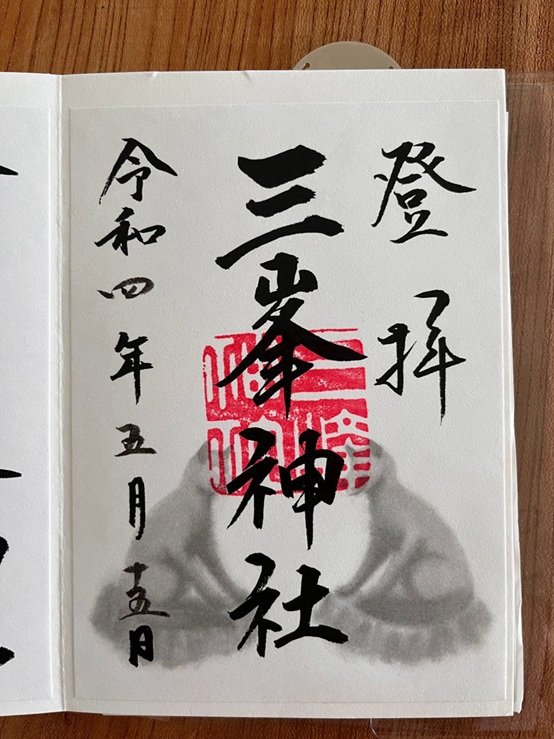 登拝
三峯神社
令和四年五月十五日